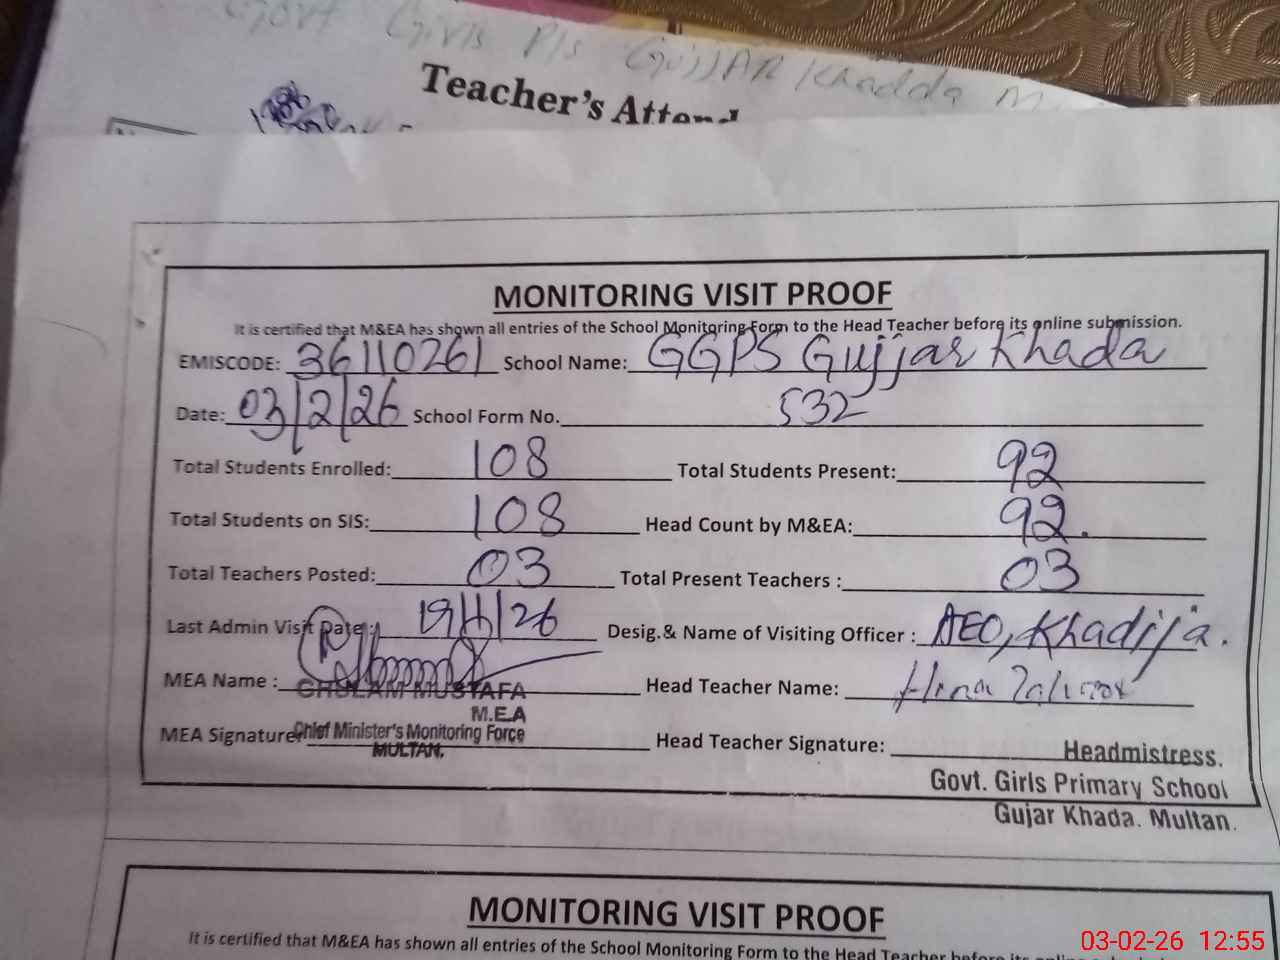 Govt Girls P/s Gujjar Khadda M
Teacher's Attend
MONITORING VISIT PROOF
It is certified that M&EA has shown all entries of the School Monitoring Form to the Head Teacher before its online submission.
EMISCODE: 36110261 School Name: GGPS Gujjar Khada
Date: 03/2/26 School Form No. 532
Total Students Enrolled: 108 Total Students Present: 92
Total Students on SIS: 108 Head Count by M&EA: 92.
Total Teachers Posted: 03 Total Present Teachers : 03
Last Admin Visit Date : 19/1/26 Desig.& Name of Visiting Officer : AEO, Khadija.
MEA Name : GHULAM MUSTAFA Head Teacher Name: Hina
M.E.A
MEA Signature: Chief Minister's Monitoring Force Head Teacher Signature: Headmistress.
MULTAN.
Govt. Girls Primary School
Gujar Khada. Multan.
MONITORING VISIT PROOF
It is certified that M&EA has shown all entries of the School Monitoring Form to the Head Teacher before its online
03-02-26 12:55